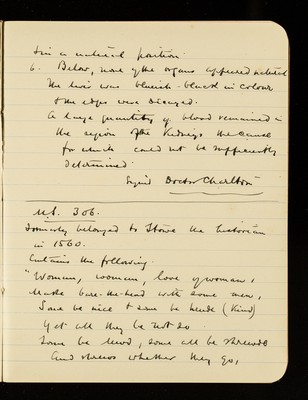 & in a natural position
6. Below, none of the organs appeared natural
The liver was blueish-black in colour
& the edges were decayed.
A large quantity of blood remained in
the region of the Kidneys the cause
for which could not be sufficiently
determined.
Signed Doctor Charlton
MS. 306.
Formerly belonged to Stowe the historian
in 1560.
Contains the following.
"Women, women, love of women,
Make bare the head with some men,
Some be nice & some be hende (Kind)
Yet all they be not so
Some be lewd, some all be shrewde
and shrews whether they go,